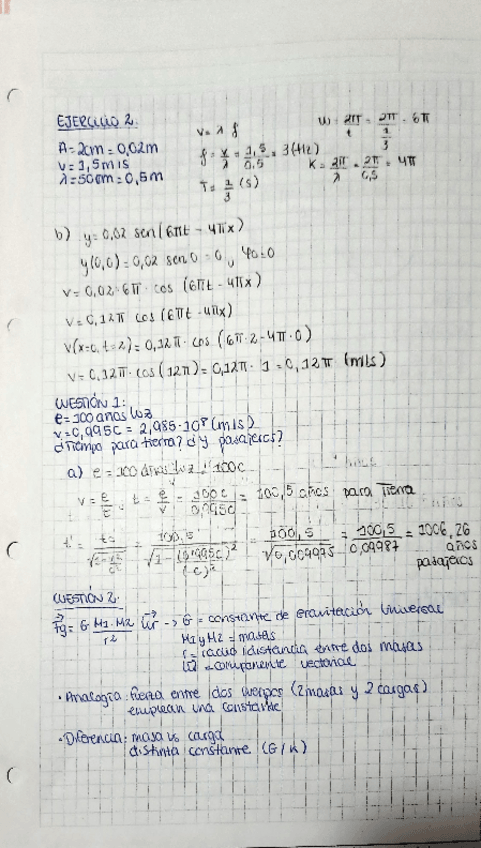 EJERCICIO 2.
A = 2cm = 0,02m
v = 1,5m/s
λ = 50cm = 0,5m
v = λ f
f = v/λ = 1,5/0,5 = 3 (Hz)
T = 1/3 (s)
ω = 2π/t = 2π/(1/3) = 6π
K = 2π/λ = 2π/0,5 = 4π
b) y = 0,02 sen(6πt - 4πx)
y(0,0) = 0,02 sen 0 = 0, φ0=0
v = 0,02·6π · cos (6πt - 4πx)
v = 0,12π cos (6πt - 4πx)
v(x=0, t=2) = 0,12π · cos (6π·2 - 4π·0)
v = 0,12π · cos(12π) = 0,12π · 1 = 0,12π (m/s)
CUESTIÓN 1:
e = 100 años luz
v = 0,995C = 2,985·10⁸ (m/s)
¿tiempo para tierra? ¿y pasajeros?
a) e = 100 años luz = 100c
v = e/t, t = e/v = 100c/0,995c = 100,5 años para Tierra
t' = to/√(1-v²/c²) = 100,5/√(1-(0,995c)²/(c)²) = 100,5/√0,009975 = 100,5/0,09987 = 1006,26 años pasajeros
CUESTIÓN 2:
Fg = G M1·M2/r² ur -> G = constante de gravitación universal
M1 y M2 = masas
r = radio/distancia entre dos masas
ur = componente vectorial
· Analogía: fuerza entre dos cuerpos (2 masas y 2 cargas)
emplean una constante
· Diferencia: masa vs carga
distinta constante (G/K)